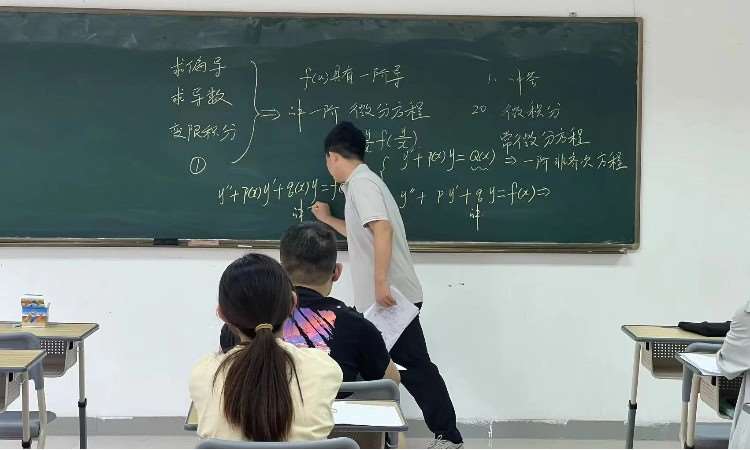 求偏导
求导数
变限积分
①
f(u)具有一阶导
⇒ 一阶 微分方程
f(y/x)
y' + p(x)y = Q(x) ⇒ 一阶非齐次方程
y'' + p(x)y' + q(x)y = f
y'' + py' + qy = f(x) ⇒
1.
20 微积分
常微分方程